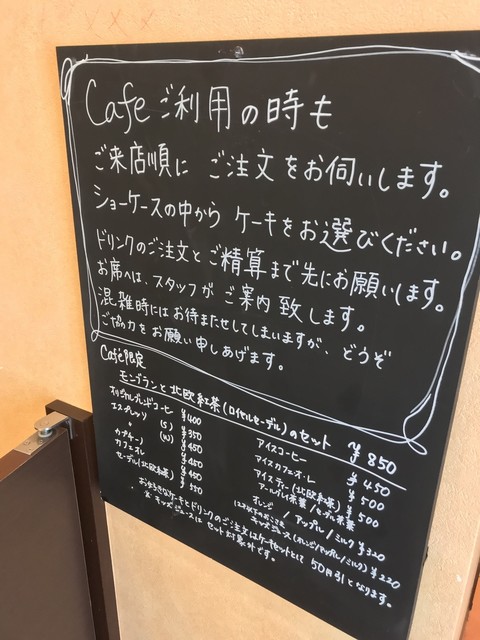 Cafeご利用の時も
ご来店順に ご注文をお伺いします。
ショーケースの中から ケーキをお選びください。
ドリンクのご注文とご精算まで先にお願いします。
お席へは、スタッフが ご案内致します。
混雑時にはお待たせしてしまいますが、どうぞ
ご協力をお願い申しあげます。
Café限定
モンブランと北欧紅茶(ロイヤルセーデル)のセット ¥850
オリジナルブレンドコーヒー ¥400
エスプレッソ (S) ¥350
〃 (W) ¥450
カプチーノ ¥450
カフェオレ ¥450
セーデル(北欧紅茶) ¥550
アイスコーヒー ¥450
アイスカフェオ・レ ¥500
アイスティー(北欧紅茶) ¥500
アールグレイ茶葉/セーデル茶葉
オレンジ /アップル/ミルク ¥320
キッズジュース(オレンジ/アップル/ミルク) ¥220
お好きなケーキとドリンクのご注文はケーキセットとして 50円引となります。
※ キッズジュースは セット対象外です。